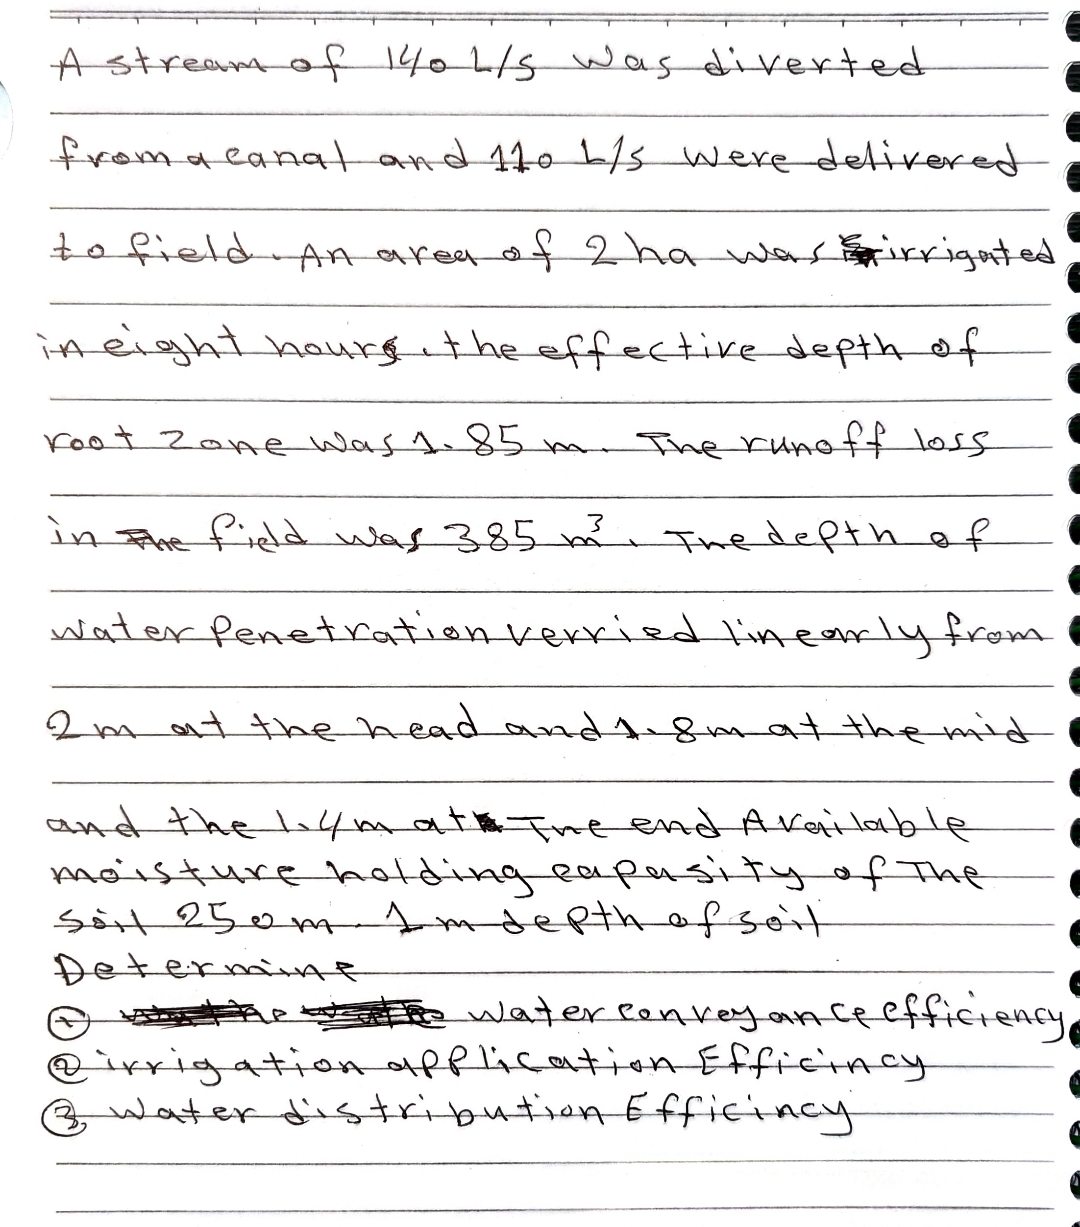 A stream of 140 L/s was diverted
from a canal and 110 L/s were delivered
to field. An area of 2 ha was irrigated
in eight hours. the effective depth of
root zone was 1.85 m. The runoff loss
in the field was 385 m³. The depth of
water penetration verried linearly from
2m at the head and 1.8m at the mid
and the 1.4m at The end Available
moisture holding capasity of The
soil 250 m. 1 m depth of soil
Determine
① water conveyance efficiency
② irrigation application Efficincy
③ water distribution Efficincy